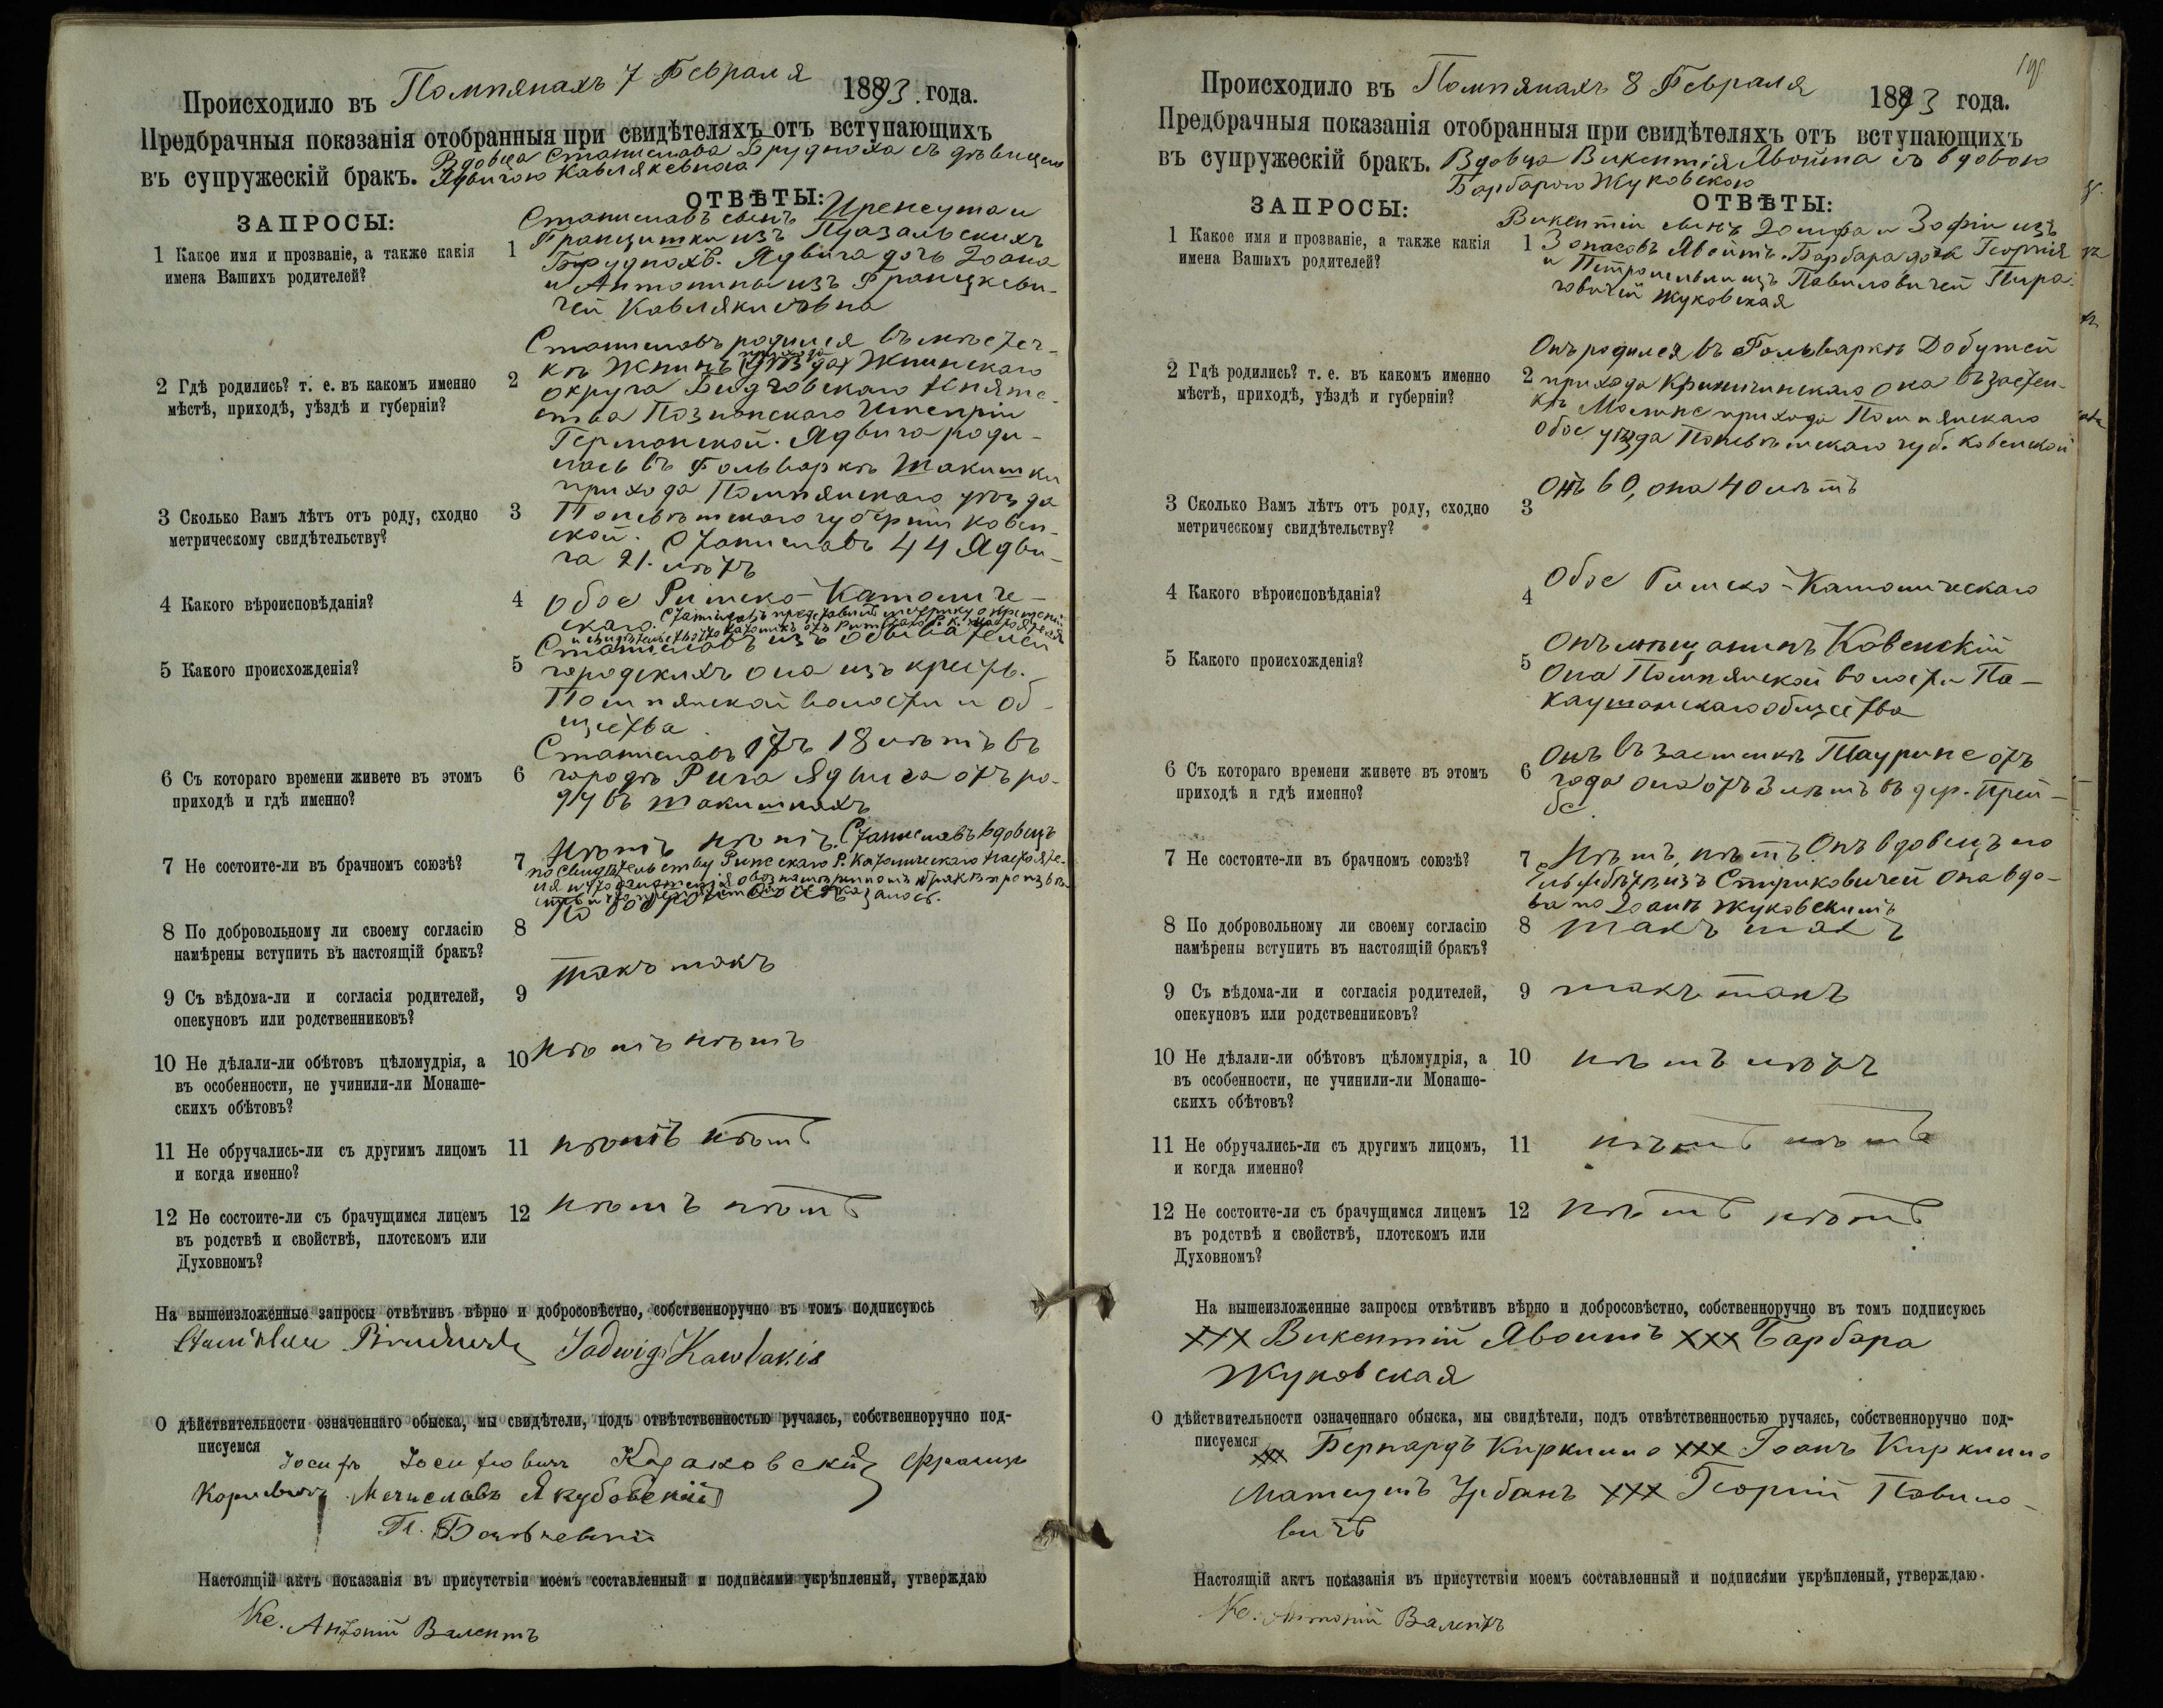 Происходило въ Помпянахъ 7 Февраля 1893 года.
Предбрачныя показанія отобранныя при свидѣтеляхъ отъ вступающихъ
въ супружескій бракъ. Вдовца Станислава Брудноха съ дѣвицею
Ядвигою
ЗАПРОСЫ:
ОТВѢТЫ:
1 Какое имя и прозваніе, а также какія
имена Вашихъ родителей?
1 Станиславъ сынъ Иренеуша и
Францишки изъ
Бруднохъ. Ядвига дочь Іоана
и Антонины изъ Францкеви-
чей
2 Гдѣ родились? т. е. въ какомъ именно
мѣстѣ, приходѣ, уѣзда и губерніи?
2 Станиславъ родился въ мѣстеч-
кѣ Жнинѣ прихода Жнинскаго
округа Бидговскаго Княже-
ства Познанскаго Имперіи
Германской. Ядвига роди-
лась въ Фольваркѣ Шакишки
прихода Помпянскаго уѣзда
Поневѣжскаго губерніи Ковен-
ской.
3 Сколько Вамъ лѣтъ отъ роду, сходно
метрическому свидѣтельству?
3 Станиславъ 44 Ядви-
га 21. лѣтъ
4 Какого вѣроисповѣданія?
4 Обое Римско-Католиче-
скаго. Станиславъ представилъ метрику о крещеніи
5 Какого происхожденія?
5 Станиславъ изъ обывателей
городскихъ она изъ крестъ.
Помпянской волости и об-
щества
6 Съ котораго времени живете въ этомъ
приходѣ и гдѣ именно?
6 Станиславъ отъ 18 лѣтъ въ
городѣ Рига Ядвига отъ ро-
ду въ Шакишкахъ
7 Не состоите-ли въ брачномъ союзѣ?
7 Нѣтъ нѣтъ. Станиславъ вдовецъ
по свидѣтельству Римскаго Р. Католическаго настояте-
ля
8 По добровольному ли своему согласію
намѣрены вступить въ настоящій бракъ?
8 По доброй
9 Съ вѣдома-ли и согласія родителей,
опекуновъ или родственниковъ?
9 такъ такъ
10 Не дѣлали-ли обѣтовъ цѣломудрія, а
въ особенности, не учинили-ли Монаше-
скихъ обѣтовъ?
10 нѣтъ нѣтъ
11 Не обручались-ли съ другимъ лицомъ
и когда именно?
11 нѣтъ нѣтъ
12 Не состоите-ли съ брачущимся лицемъ
въ родствѣ и свойствѣ, плотскомъ или
Духовномъ?
12 нѣтъ нѣтъ
На вышеизложенные запросы отвѣтивъ вѣрно и добросовѣстно, собственноручно въ томъ подписуюсь
Jadwiga Kawlakis
О дѣйствительности означеннаго обыска, мы свидѣтели, подъ отвѣтственностью ручаясь, собственноручно под-
писуемся Іосифъ Францъ
Мечиславъ Якубовскій
Настоящій актъ показанія въ присутствіи моемъ составленный и подписями укрѣпленый, утверждаю
Кс. Антоній Валентъ
Происходило въ Помпянахъ 8 Февраля 1893 года.
Предбрачныя показанія отобранныя при свидѣтеляхъ отъ вступающихъ
въ супружескій бракъ. Вдовца Викентія Явойша съ вдовою
Барбарою Жуковскою
ЗАПРОСЫ:
ОТВѢТЫ:
1 Какое имя и прозваніе, а также какія
имена Вашихъ родителей?
1 Викентій сынъ Іосифа и Зофіи изъ
Явойшъ. Барбара дочь Георгія
и Петронели изъ Павиловичей
Жуковская
2 Гдѣ родились? т. е. въ какомъ именно
мѣстѣ, приходѣ, уѣздѣ и губерніи?
2 Онъ родился въ Фольваркѣ Добужей
прихода она въ застен-
кѣ прихода Помпянскаго
обое уѣзда Поневѣжскаго губ. Ковенской
3 Сколько Вамъ лѣтъ отъ роду, сходно
метрическому свидѣтельству?
3 Онъ 60, она 40 лѣтъ
4 Какого вѣроисповѣданія?
4 Обое Римско-Католическаго
5 Какого происхожденія?
5 Онъ мѣщанинъ Ковенскій
Она Помпянской волости Па-
каушанскаго общества
6 Съ котораго времени живете въ этомъ
приходѣ и гдѣ именно?
6 Онъ въ застенкѣ Таурине отъ
года она отъ 3 лѣтъ въ дер.
7 Не состоите-ли въ брачномъ союзѣ?
7 Нѣтъ, нѣтъ Онъ вдовецъ по
изъ Стриковичей Она вдо-
ва по Іоанѣ Жуковскимъ
8 По добровольному ли своему согласію
намѣрены вступить въ настоящій бракъ?
8 такъ такъ
9 Съ вѣдома-ли и согласія родителей,
опекуновъ или родственниковъ?
9 такъ такъ
10 Не дѣлали-ли обѣтовъ цѣломудрія, а
въ особенности, не учинили-ли Монаше-
скихъ обѣтовъ?
10 нѣтъ нѣтъ
11 Не обручались-ли съ другимъ лицомъ,
и когда именно?
11 нѣтъ нѣтъ
12 Не состоите-ли съ брачущимся лицемъ
въ родствѣ и свойствѣ, плотскомъ или
Духовномъ?
12 нѣтъ нѣтъ
На вышеизложенные запросы отвѣтивъ вѣрно и добросовѣстно, собственноручно въ томъ подписуюсь
ХХХ Викентій Явоишъ ХХХ Барбара
Жуковская
О дѣйствительности означеннаго обыска, мы свидѣтели, подъ отвѣтственностью ручаясь, собственноручно под-
писуемся ХХХ Бернардъ Киркилло ХХХ Іоанъ Киркилло
Матеушъ Урбанъ ХХХ Георгій Павило-
вичъ
Настоящій актъ показанія въ присутствіи моемъ составленный и подписями укрѣпленый, утверждаю.
Кс. Антоній Валентъ